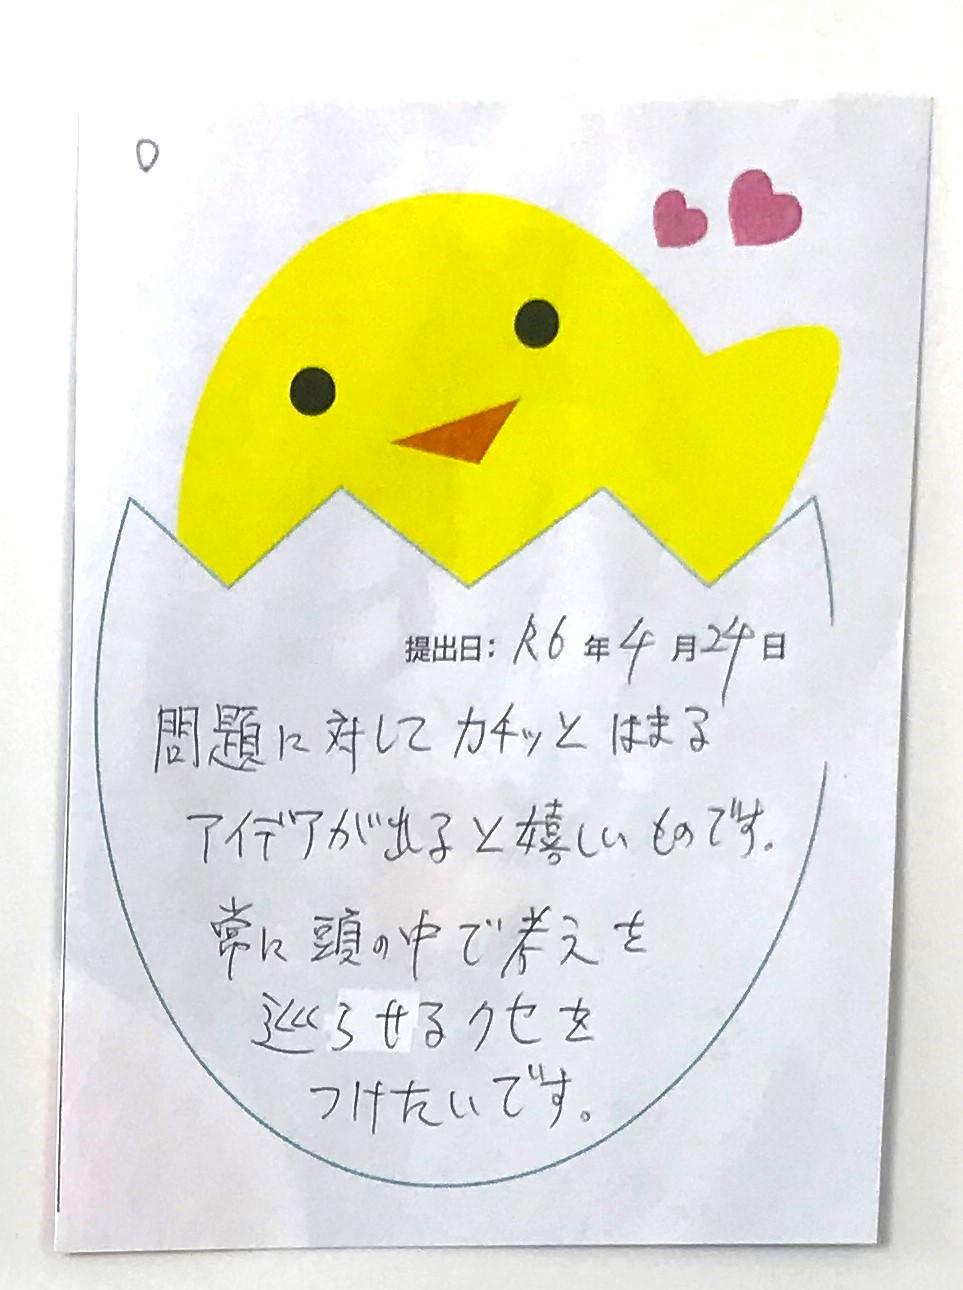 0
提出日: R6 年 4 月 24 日
問題に対してカチッとはまる
アイデアが出ると嬉しいものです。
常に頭の中で考えを
巡らせるクセを
つけたいです。